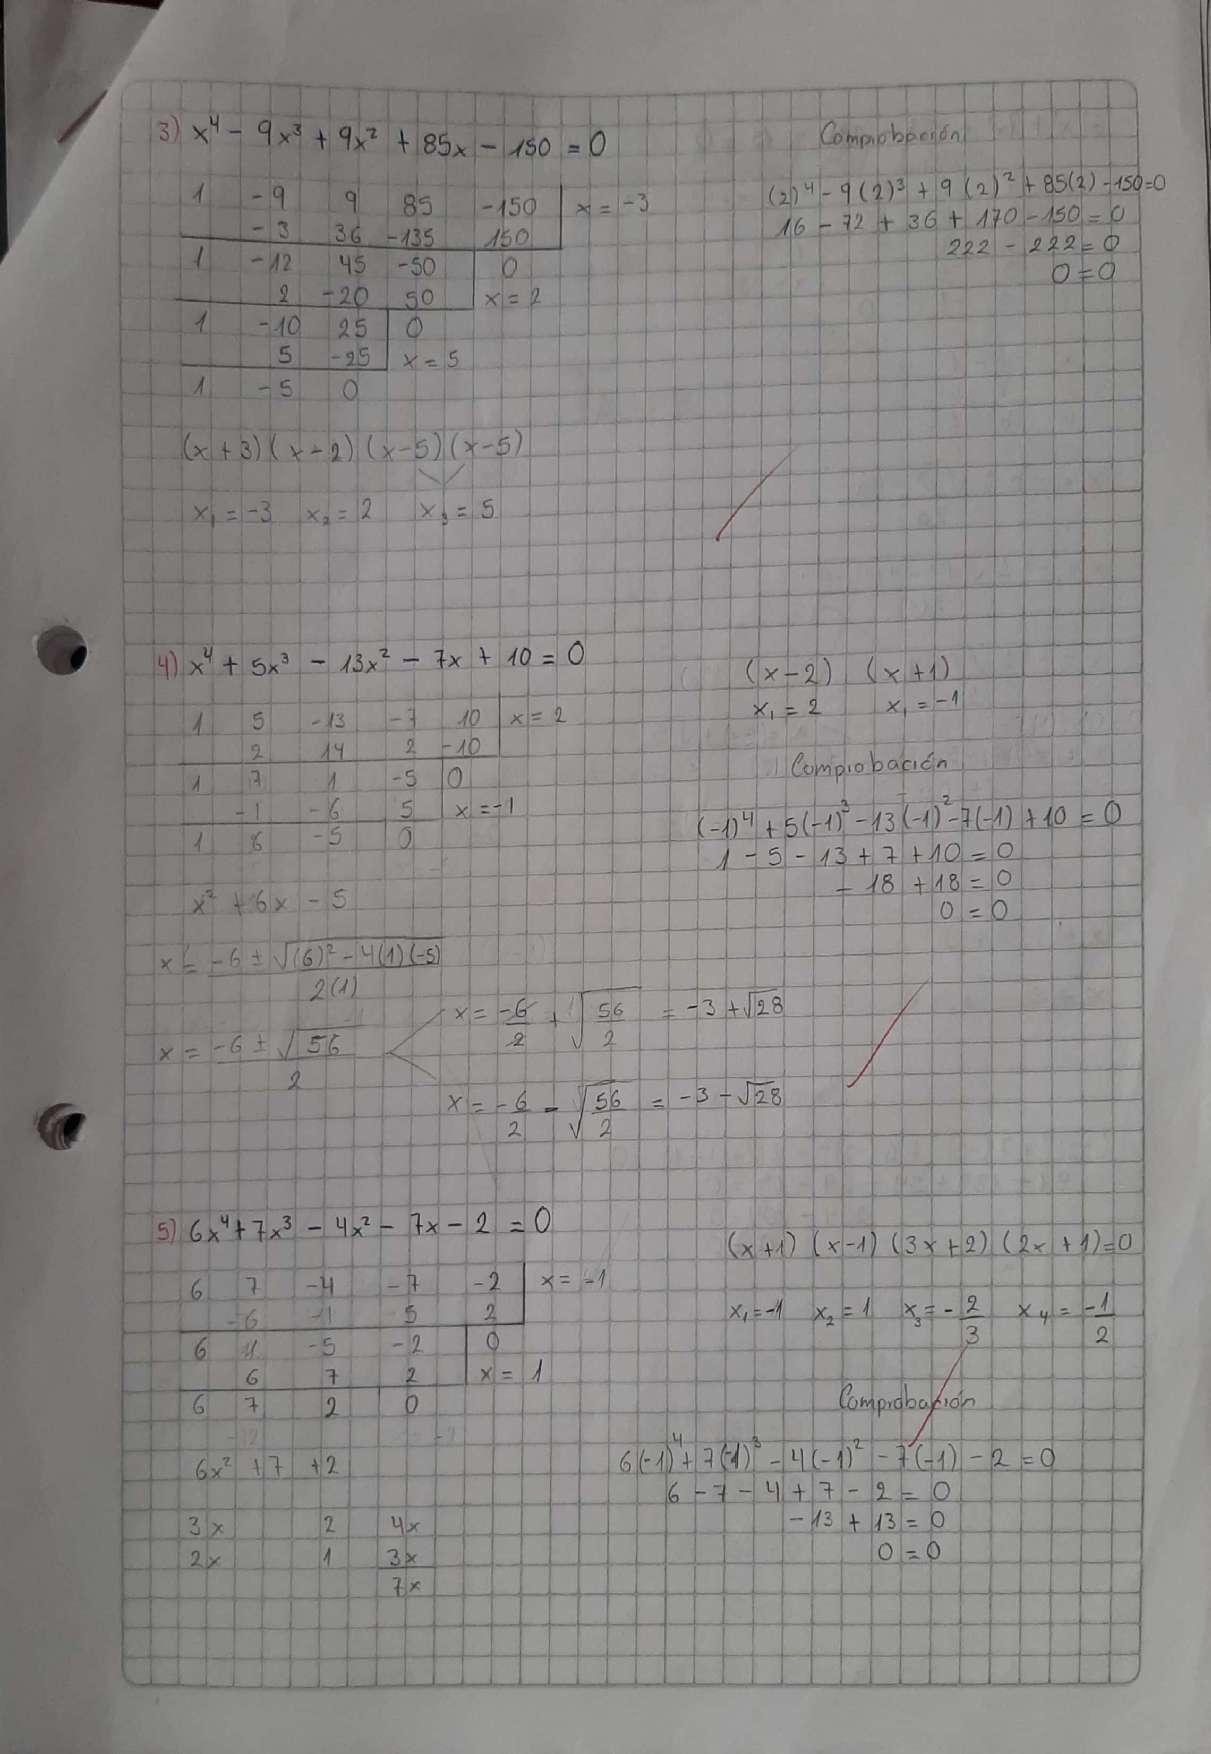 3) x⁴ - 9x³ + 9x² + 85x - 150 = 0
1 -9 9 85 -150 x = -3
-3 36 -135 150
1 -12 45 -50 0
2 -20 50 x = 2
1 -10 25 0
5 -25 x = 5
1 -5 0
(x + 3) (x - 2) (x - 5) (x - 5)
x₁ = -3 x₂ = 2 x₃ = 5
Comprobación
(2)⁴ - 9(2)³ + 9(2)² + 85(2) - 150 = 0
16 - 72 + 36 + 170 - 150 = 0
222 - 222 = 0
0 = 0
4) x⁴ + 5x³ - 13x² - 7x + 10 = 0
1 5 -13 -7 10 x = 2
2 14 2 -10
1 7 1 -5 0
-1 -6 5 x = -1
1 6 -5 0
x² + 6x - 5
x = -6 ± √(6)² - 4(1)(-5) / 2(1)
x = -6 ± √56 / 2
x = -6/2 + √56/2 = -3 + √28
x = -6/2 - √56/2 = -3 - √28
(x - 2) (x + 1)
x₁ = 2 x₁ = -1
Comprobación
(-1)⁴ + 5(-1)³ - 13(-1)² - 7(-1) + 10 = 0
1 - 5 - 13 + 7 + 10 = 0
- 18 + 18 = 0
0 = 0
5) 6x⁴ + 7x³ - 4x² - 7x - 2 = 0
6 7 -4 -7 -2 x = -1
-6 -1 5 2
6 1 -5 -2 0
6 7 2 x = 1
6 7 2 0
6x² + 7 + 2
3x 2 4x
2x 1 3x
7x
(x + 1) (x - 1) (3x + 2) (2x + 1) = 0
x₁ = -1 x₂ = 1 x₃ = -2/3 x₄ = -1/2
Comprobación
6(-1)⁴ + 7(-1)³ - 4(-1)² - 7(-1) - 2 = 0
6 - 7 - 4 + 7 - 2 = 0
-13 + 13 = 0
0 = 0